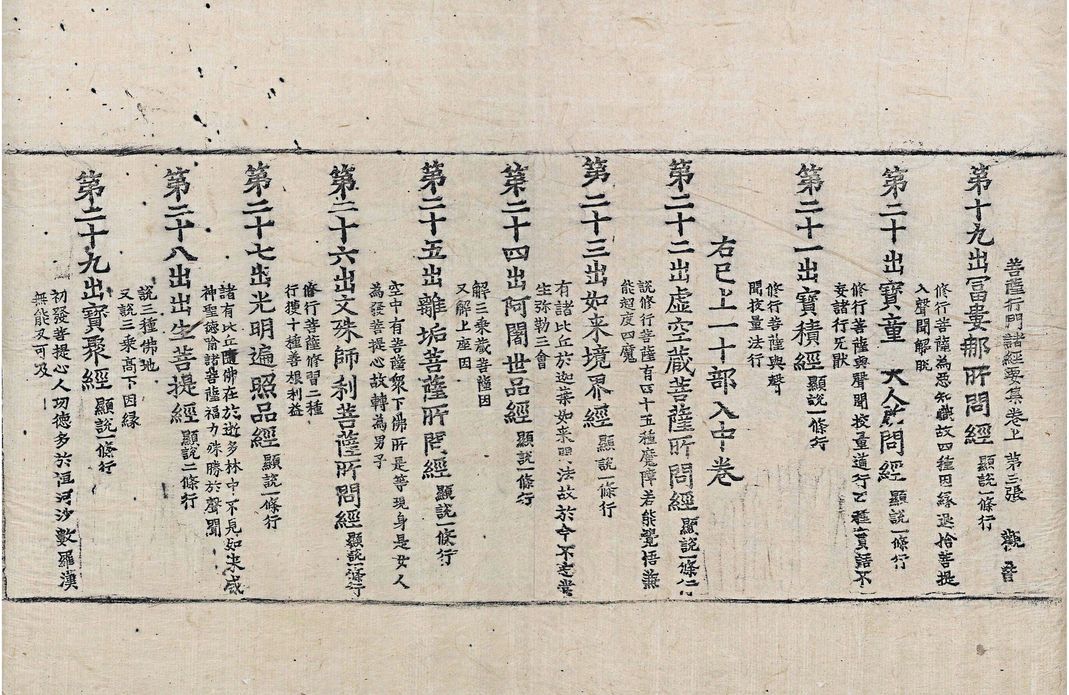 菩薩行門諸經要集卷上 第三張 觀音
第十九出富婁那所問經 顯說一條行
修行菩薩為惡知識故四種因緣退捨菩提
入聲聞解脫
第二十出寶童 大人所問經 顯說一條行
修行菩薩與聲聞校量道行 種 話不
妄諸行死獸
第二十一出寶積經 顯說一條行
修行菩薩與聲
聞校量法行
右已上一十部入中卷
第二十二出虛空藏菩薩所問經 顯說一條行
說修行菩薩有四十五種魔障若能覺悟兼
能超度四魔
第二十三出如来境界經 顯說一條行
有諸比丘於迦葉如来 法故於今不 當
生弥勒三會
第二十四出阿闍世品經 顯說一條行
解三乘藏菩薩因
又解上座因
第二十五出離垢菩薩所問經 顯說一條行
空中有菩薩衆下佛所是等現身是女人
為發菩提心故轉為男子
第二十六出文殊師利菩薩所問經 顯說一條行
修行菩薩修習二種
行獲十種善根利益
第二十七出光明遍照品經 顯說一條行
諸有比丘隨佛在於逝多林中不見如来咸
神聖德 諸菩薩福力殊勝於聲聞
第二十八出出生菩提經 顯說二條行
說三種佛地
又說三乘高下因縁
第二十九出寶聚經 顯說一條行
初發菩提心人功德多於洹河沙數羅漢
無能及可及